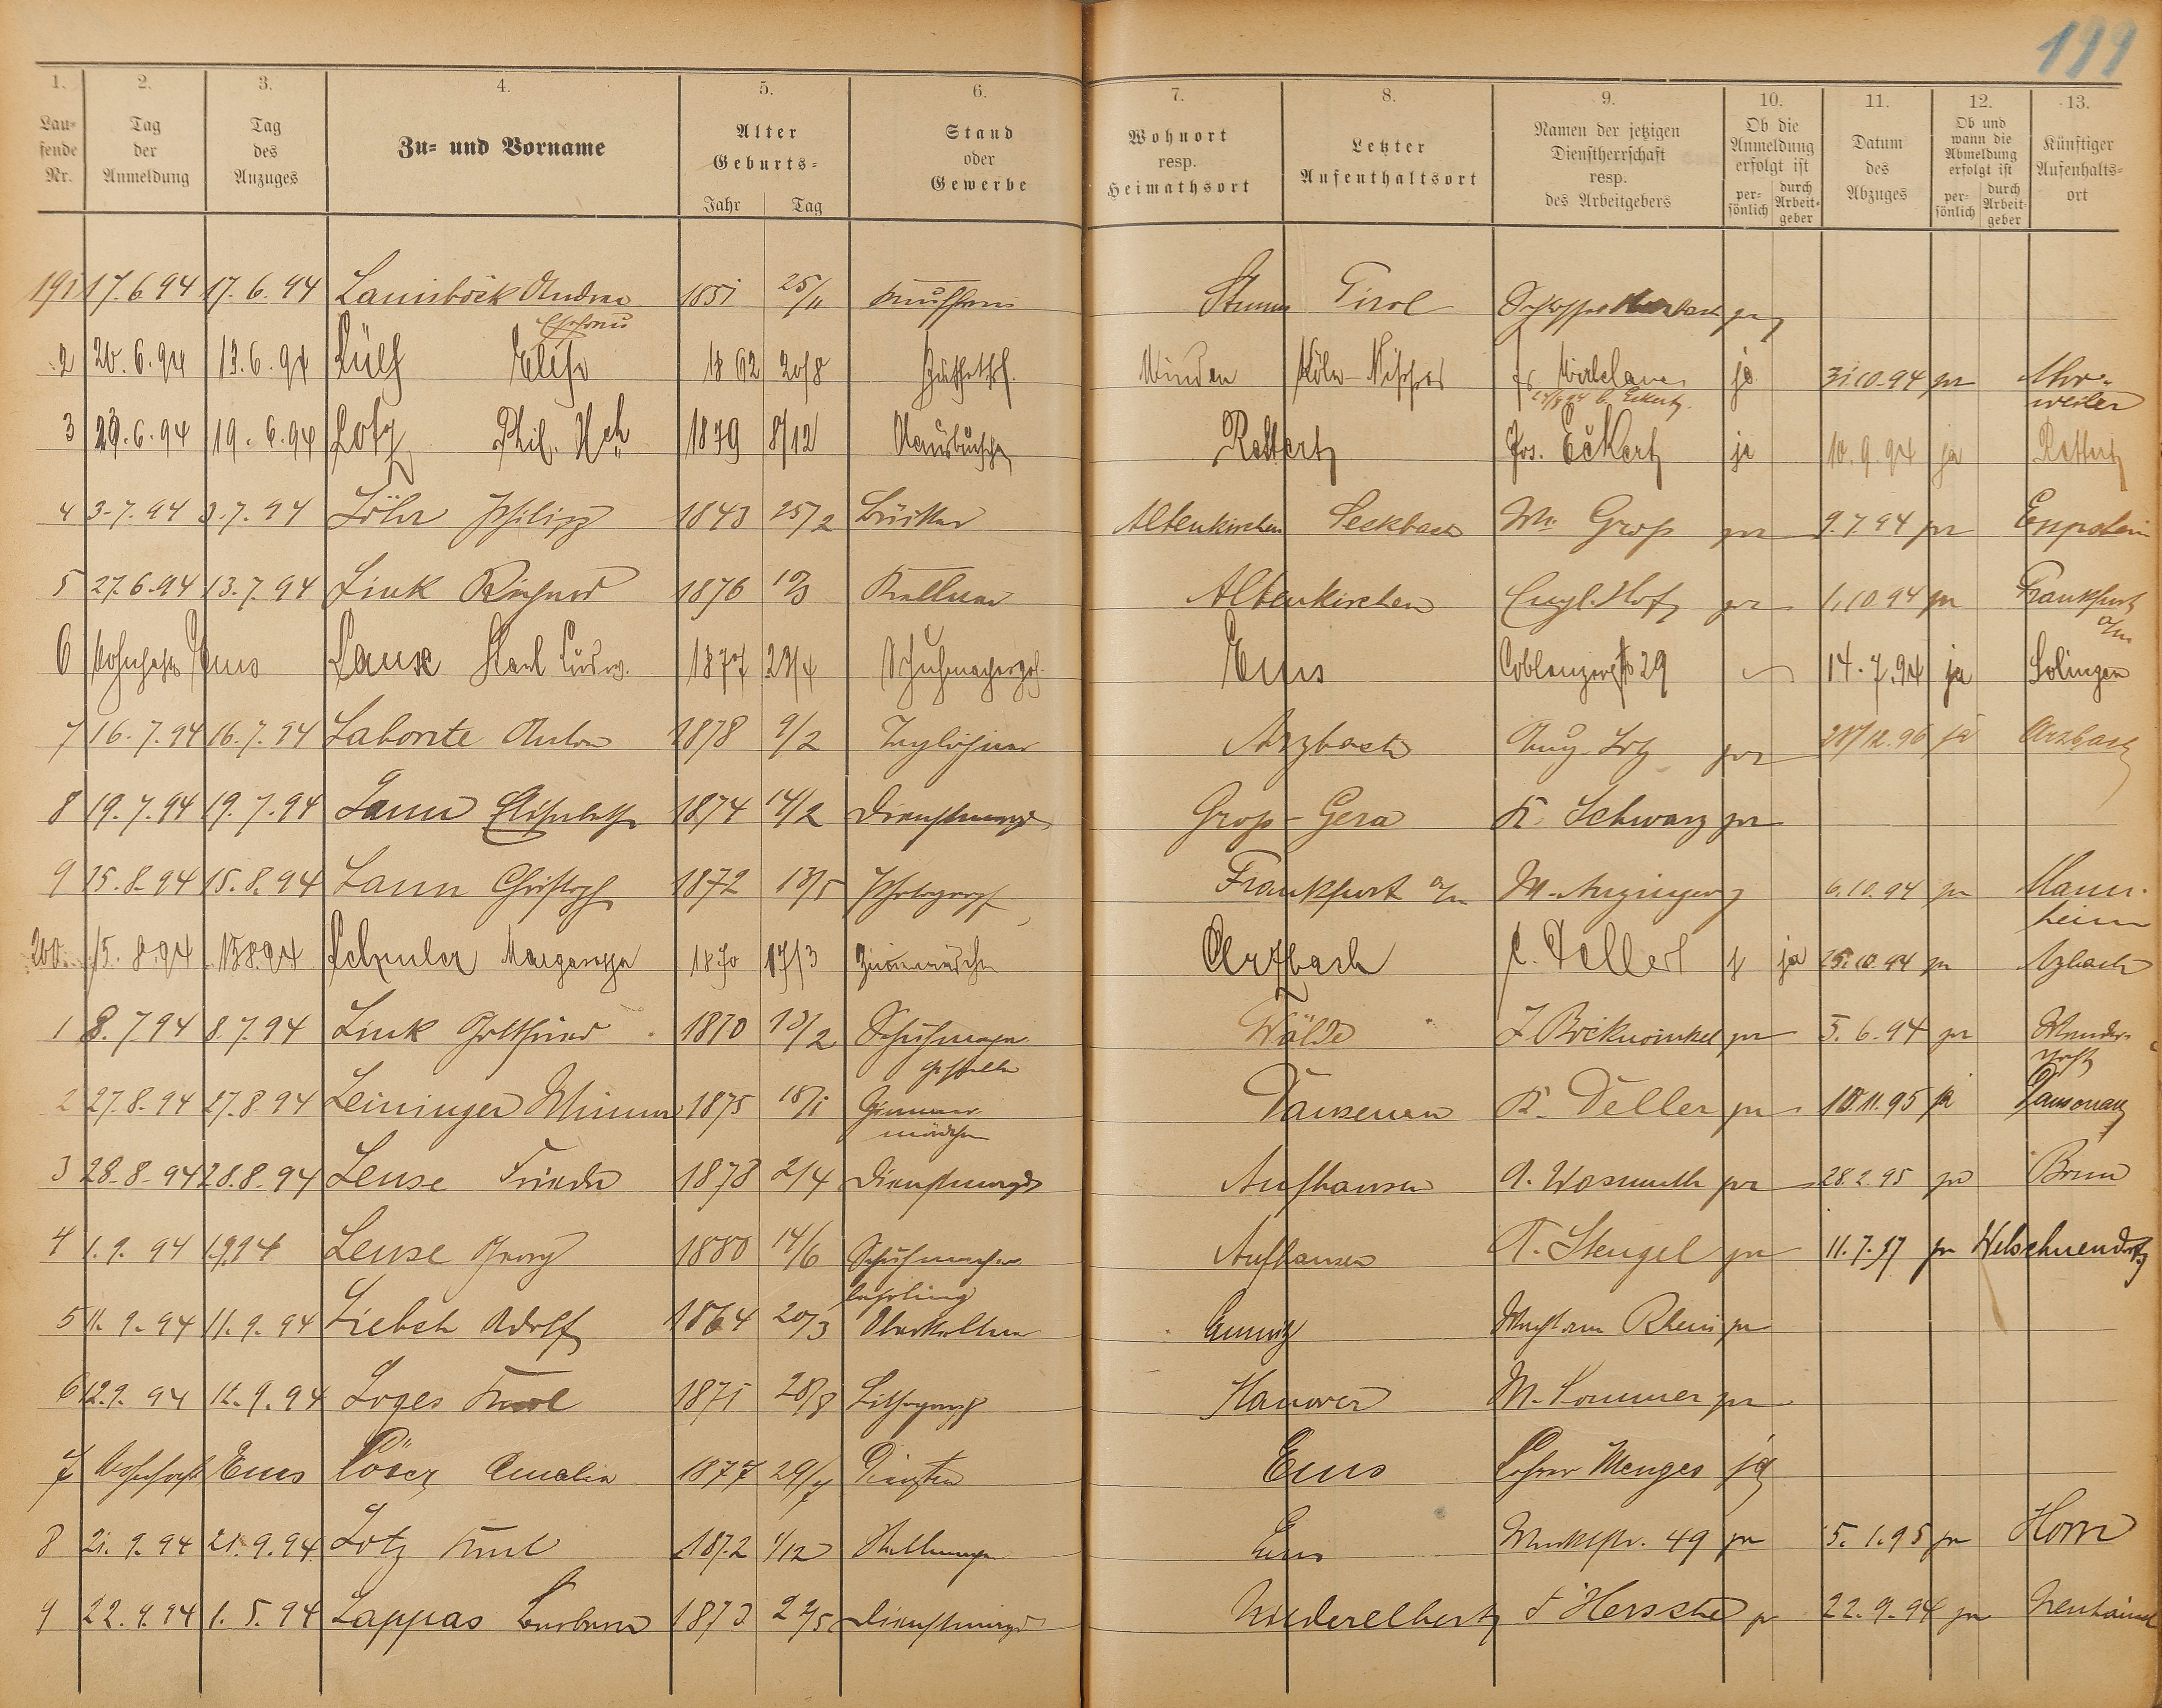 199
1. 2. 3. 4. 5. 6. 7. 8. 9. 10. 11. 12. 13.
Lau-
fende
Nr.
Tag
der
Anmeldung
Tag
des
Anzuges
Zu- und Vorname
Alter
Geburts-
Jahr Tag
Stand
oder
Gewerbe
Wohnort
resp.
Heimathsort
Letzter
Aufenthaltsort
Namen der jetzigen
Dienstherrschaft
resp.
des Arbeitgebers
Ob die
Anmeldung
erfolgt ist
per-
sönlich
durch
Arbeit-
geber
Datum
des
Abzuges
Ob und
wann die
Abmeldung
erfolgt ist
per-
sönlich
durch
Arbeit-
geber
Künftiger
Aufenhalts-
ort
191 17.6.94 17.6.94 Lamiböck Andrea 1851 25/11 Stumm Tirol
Ehefrau
2 20.6.94 13.6.94 Lülf Elise 1862 20/8 Minden Köln-Nippes fr. ja 31.10.94 ja Ahr-
weiler
b. Eckertz.
3 29.6.94 19.6.94 Lotz Phil. Hch 1879 8/12 Hausbursche Rettert Jos. Eckertz ja 10.9.94 ja Rettert
4 3.7.94 3.7.94 Löhr Philipp 1843 25/2 Altenkirchen Seckbach Wn Groß ja 9.7.94 ja Eppstein
5 27.6.94 13.7.94 Link Richard 1876 10/3 Kellner Altenkirchen Engl. Hof ja 1.10.94 ja Frankfurt
a/m
6 wohnhaft Ems Lause Karl Ludw. 1877 23/4 Schuhmachergeh. Ems Coblenzerstr 29 14.7.94 ja Solingen
7 16.7.94 16.7.94 Laborte Anton 1878 9/2 Taglöhner Arzbach Aug. Lotz ja 28/12.96 ja Arzbach
8 19.7.94 19.7.94 Lann Elisabeth 1874 14/2 Dienstmagd Groß-Gera K. Schwarz ja
9 15.8.94 15.8.94 Lann Christoph 1872 13/5 Photograph Frankfurt a/m M. 6.10.94 ja Mann-
heim
200 15.8.94 15.8.94 Margaretha 1870 17/3 Arzbach C. ja 25.10.94 ja Azbach
1 8.7.94 8.7.94 Link Gottfried 1870 13/2 Schuhmacher Wälde J. Böcknoinkel ja 5.6.94 ja Wander-
schaft
geselle
2 27.8.94 27.8.94 Leininger Minna 1875 18/1 Zimmer- Dausenau K. Deller ja 18.11.95 ja Dausenau
mädchen
3 28.8.94 28.8.94 Leuse Frieda 1878 2/4 Dienstmagd Aufhausen A. Wasmuth ja 28.2.95 ja Bonn
4 1.9.94 1.9.94 Leuse Georg 1880 14/6 Schuhmacher Aufhausen A. Stengel ja 11.7.97 ja Welschneudorf
lehrling
5 11.9.94 11.9.94 Liebch Adolf 1864 20/3 Oberkellner ja
6 12.9.94 12.9.94 Loges Karl 1871 28/8 Lithograph Hanover M. Sommer ja
7 Wohnhaft Ems Löser Amalia 1877 29/7 Ems Lehrer Menges ja
8 21.9.94 21.9.94 Lotz Karl 1872 1/12 Ems 49 ja 5.1.95 ja Horn
9 22.9.94 1.5.94 Lappas Barbara 1873 22/5 Dienstmagd Niederelbert ja 22.9.94 ja Neuhäusel